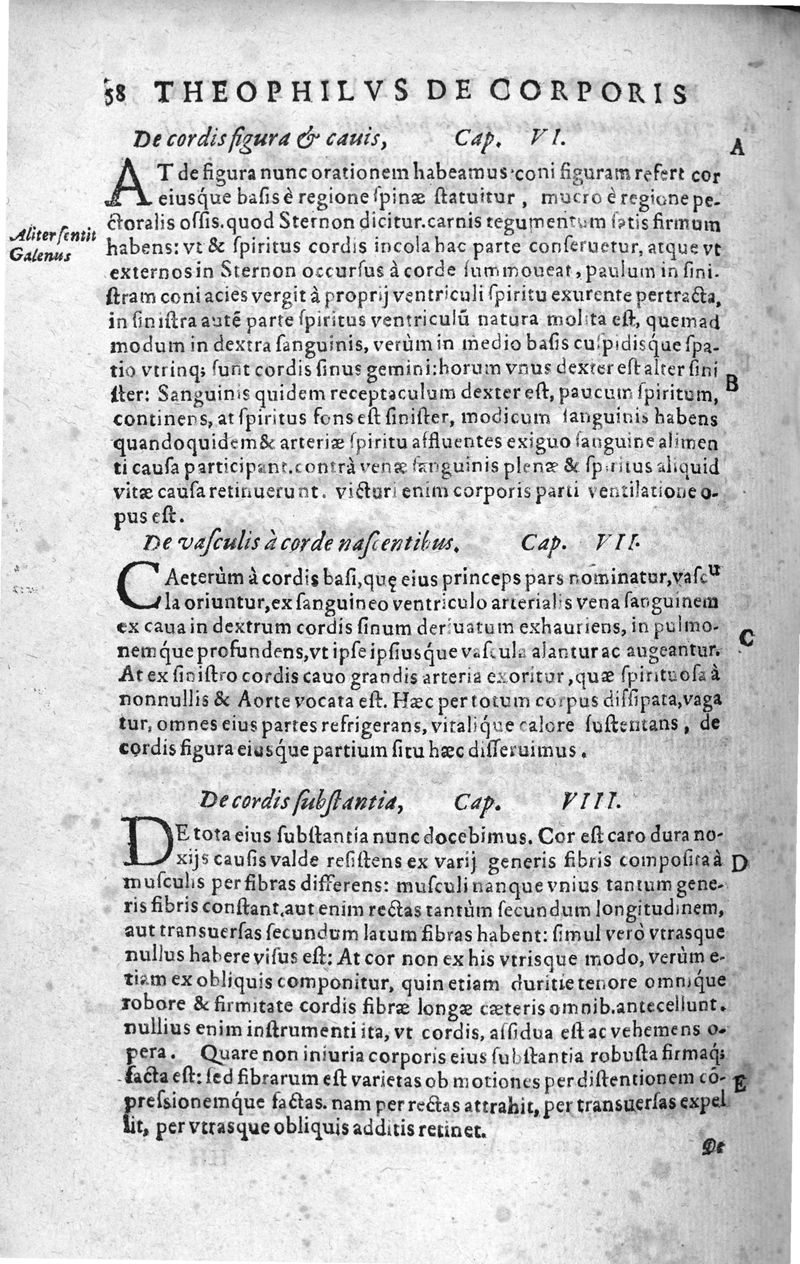 58 THEOPHILVS DE CORPORIS
De cordis figura & cauis, Cap. VI.
A
AT de figura nunc orationem habeamus·coni figuram refert cor
eiusq́ue basis è regione spinæ statuitur, mucro è regione pe-
ctoralis ossis.quod Sternon dicitur.carnis tegumentum satis firmum
Aliter sentit
Galenus
habens: vt & spiritus cordis incola hac parte conseruetur, atque vt
externos in Sternon occursus à corde summoueat, paulum in sini-
stram coni acies vergit à proprij ventriculi spiritu exurente pertracta,
in sinistra autẽ parte spiritus ventriculũ natura molita est, quemad
modum in dextra sanguinis, verùm in medio basis cuspidisq́ue spa-
tio vtrinq; sunt cordis sinus gemini:horum vnus dexter est alter sini
B
ster: Sanguinis quidem receptaculum dexter est, paucum spiritum,
continens, at spiritus fons est sinister, modicum sanguinis habens
quandoquidem & arteriæ spiritu affluentes exiguo sanguine alimen
ti causa participant.contrà venæ sanguinis plenæ & spiritus aliquid
vitæ causa retinuerunt. victuri enim corporis parti ventilatione o-
pus est.
De vasculis à corde nascentibus, Cap. VII.
CAeterùm à cordis basi,quę eius princeps pars nominatur,vascu
la oriuntur,ex sanguineo ventriculo arterialis vena sanguinem
ex caua in dextrum cordis sinum deriuatum exhauriens, in pulmo-
C
nemq́ue profundens,vt ipse ipsiusq́ue vascula alantur ac augeantur.
At ex sinistro cordis cauo grandis arteria exoritur,quæ spirituosa à
nonnullis & Aorte vocata est. Hæc per totum corpus dissipata,vaga
tur, omnes eius partes refrigerans, vitaliq́ue calore sustentans, de
cordis figura eiusq́ue partium situ hæc disseruimus.
De cordis substantia, Cap. VIII.
DE tota eius substantia nunc docebimus. Cor est caro dura no-
xijs causis valde resistens ex varij generis fibris composita à
D
musculis per fibras differens: musculi nanque vnius tantum gene-
ris fibris constant,aut enim rectas tantùm secundum longitudinem,
aut transuersas secundum latum fibras habent: simul verò vtrasque
nullus habere visus est: At cor non ex his vtrisque modo, verùm e-
tiam ex obliquis componitur, quin etiam duritie tenore omniq́ue
robore & firmitate cordis fibræ longæ cæteris omnib.antecellunt.
nullius enim instrumenti ita, vt cordis, assidua est ac vehemens o-
pera. Quare non iniuria corporis eius substantia robusta firmaq́;
facta est: sed fibrarum est varietas ob motiones per distentionem cõ-
E
pressionemq́ue factas. nam per rectas attrahit, per transuersas expel
lit, per vtrasque obliquis additis retinet.
De